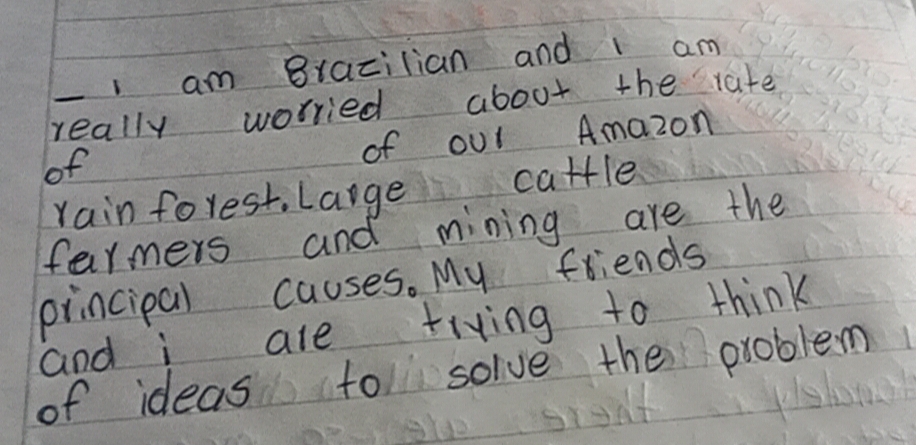 _ i am Brazilian and i am
really worried about the rate
of of our Amazon
rainforest. Large cattle
farmers and mining are the
principal causes. My friends
and i are trying to think
of ideas to solve the problem